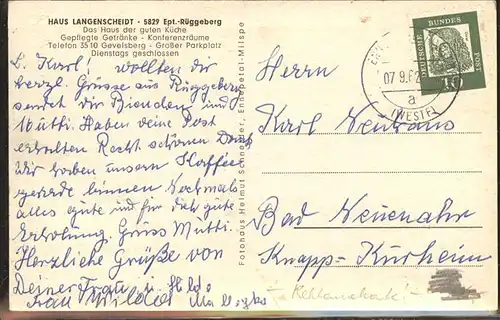 HAUS LANGENSCHEIDT · 5829 Ept.-Rüggeberg
Das Haus der guten Küche
Gepflegte Getränke - Konferenzräume
Telefon 3510 Gevelsberg - Großer Parkplatz
Dienstags geschlossen
L. Karl! wollten dir
herzl. Grüsse aus Rüggeberg
sendet dir
Mutti. Haben deine Post
erhalten Recht schönen Dank
Wir haben unsern Kaffee
gerade binnen Nochmals
alles gute und für dich gute
Erholung. Gruss Mutti.
Herzliche Grüße von
Deiner Frau u. Hilde
Frau Wilde
Fotohaus Helmut Schneider, Ennepetal-Milspe
DEUTSCHE BUNDESPOST
10
07.9.62
a
(WESTF)
Herrn
Karl Neuhaus
Bad Neuenahr
Knapp-Kurheim
- Reklamekarte! -